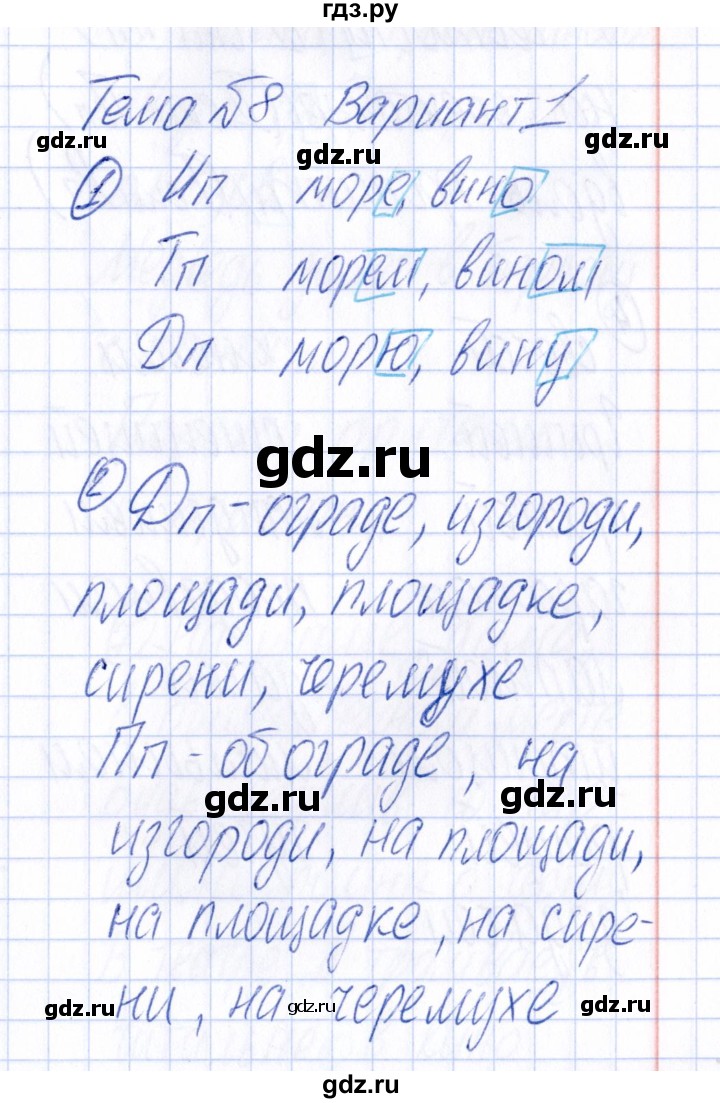 гдз.ру
Тема №8 Вариант 1
gdz.ru
gdz.ru
gdz.ru
1 Ип море, вино
Тп морем, вином
Дп морю, вину
gdz.ru
2 Дп - ограде, изгороди,
площади, площадке,
сирени, черемухе
Пп - об ограде, на
gdz.ru
gdz.ru
изгороди, на площади,
на площадке, на сире-
ни, на черемухе
gdz.ru
gdz.ru
gdz.ru
gdz.ru